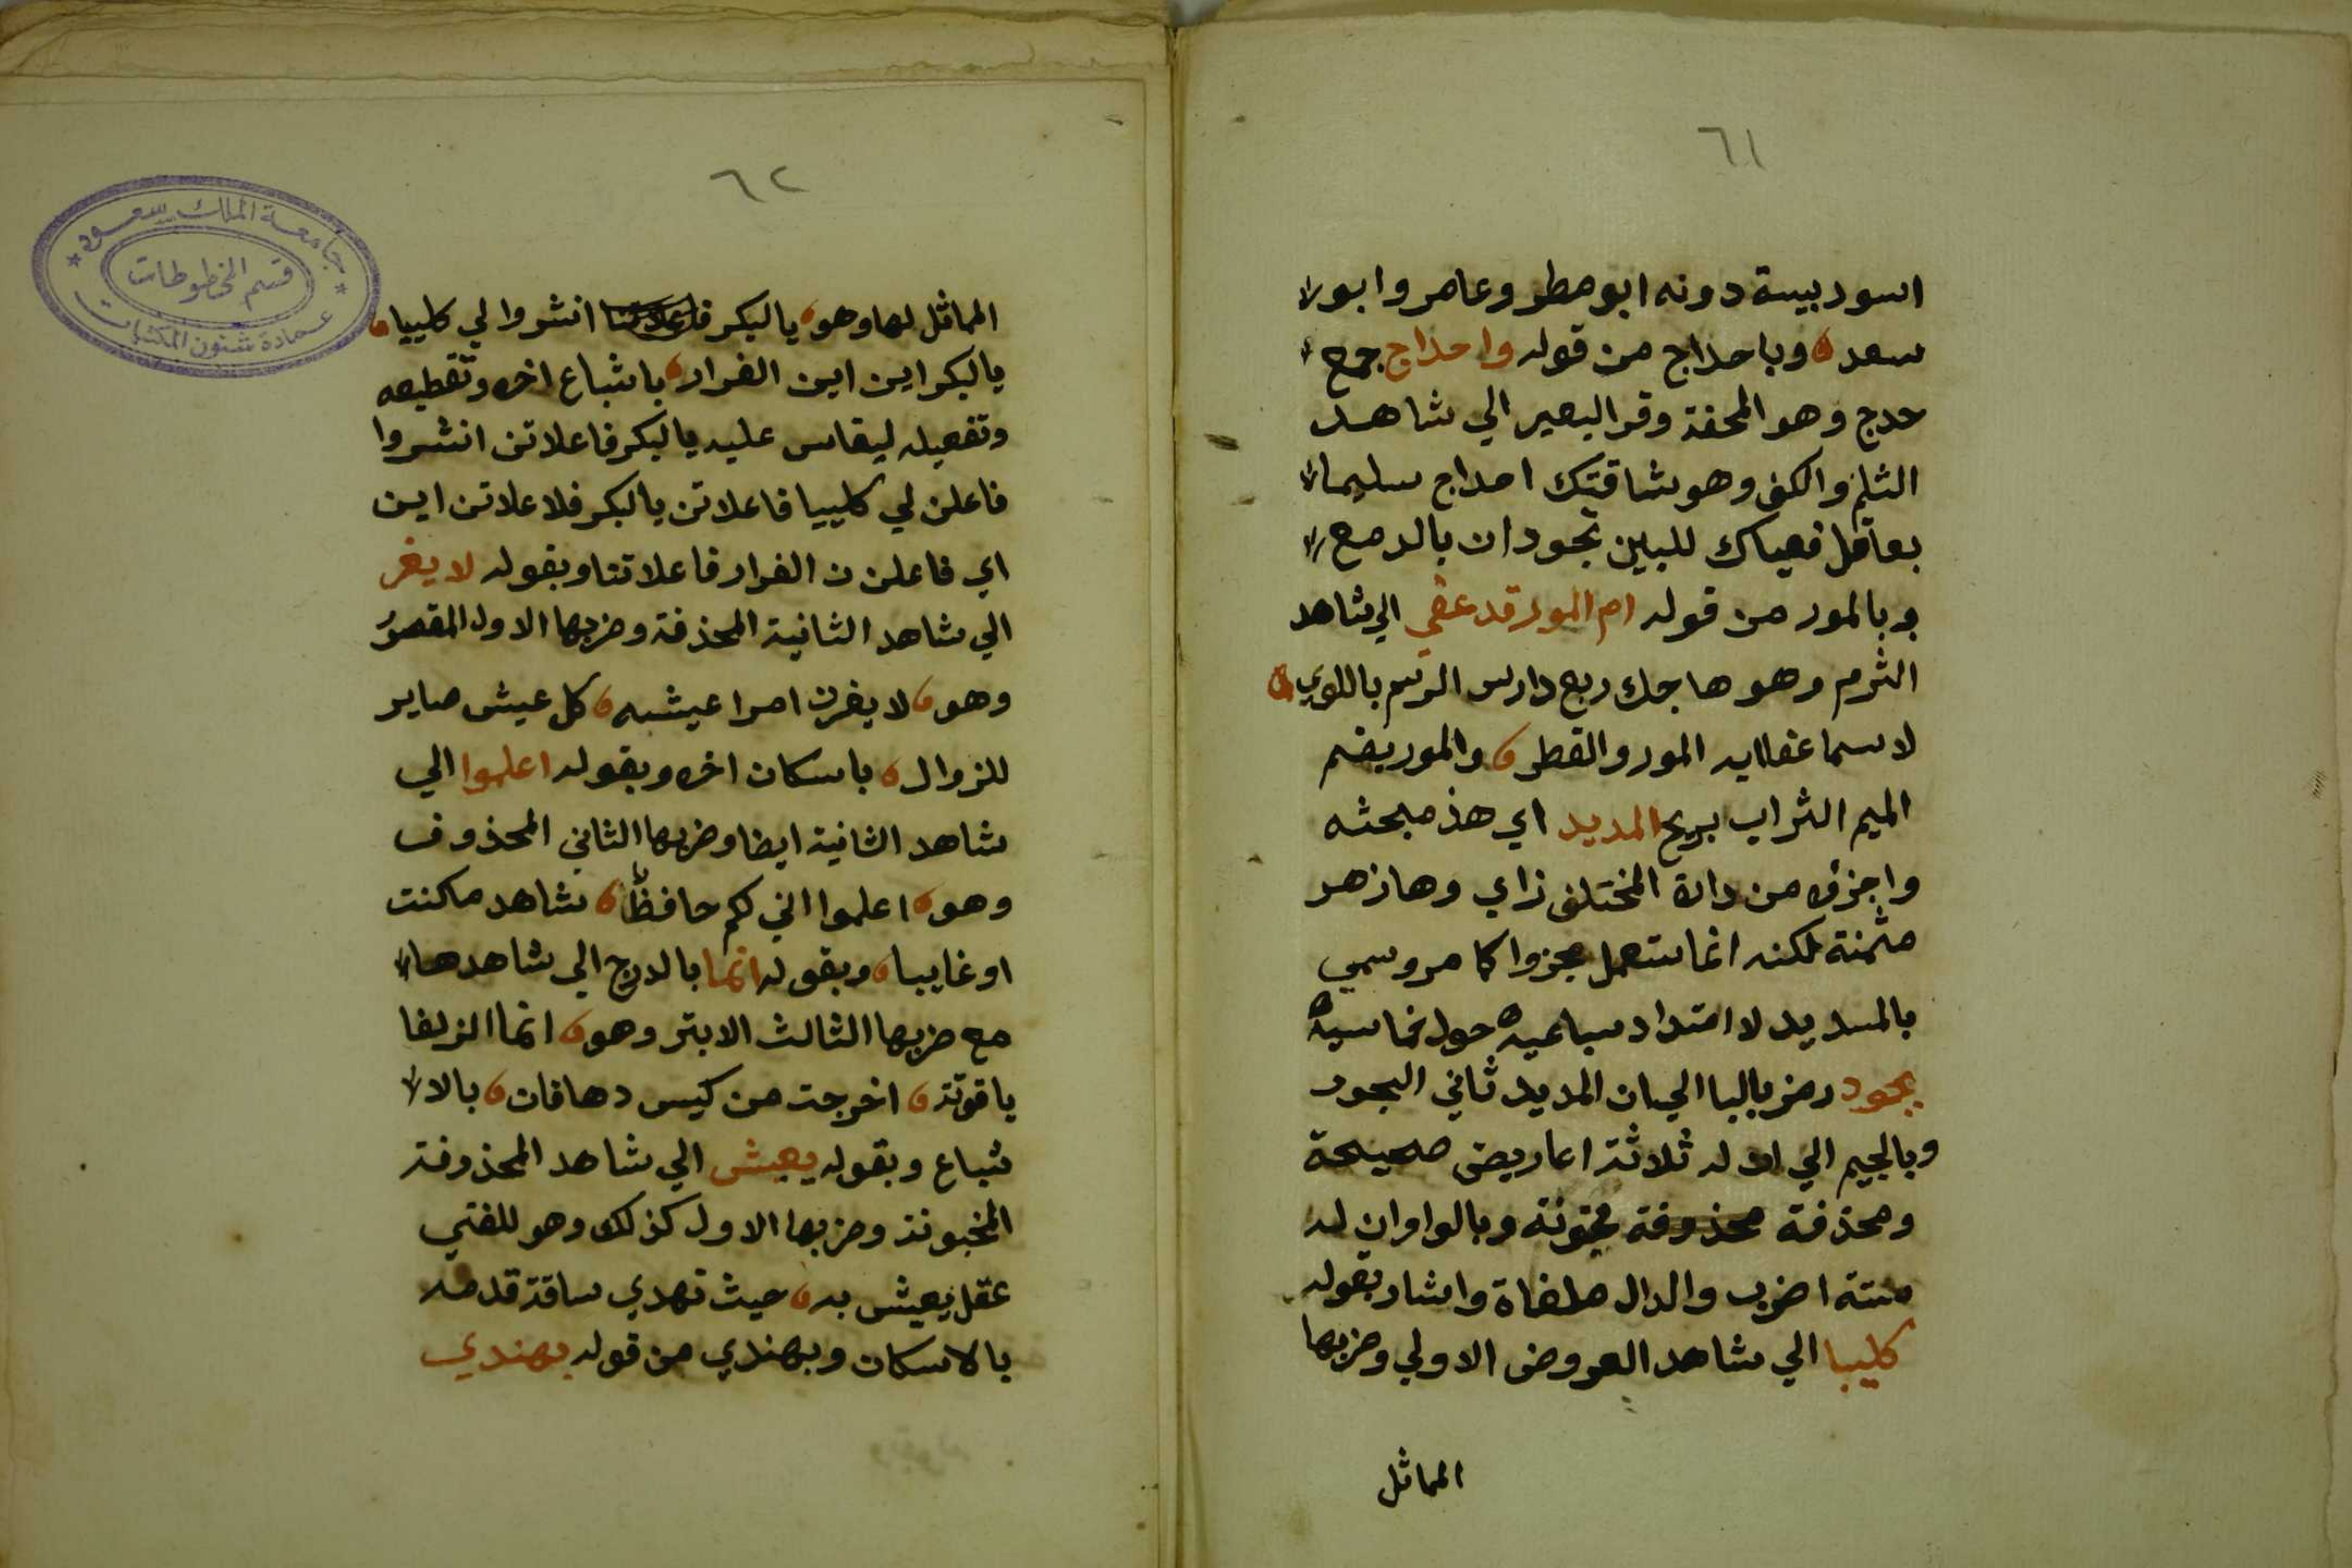 ٦١
اسود بيسة دونه ابو مطر وعامر وابو
سعد وباحداج من قوله واحداج جمع
حدج وهو المحفة وقر البعير الي شاهد
الثلم والكف وهو شاقتك احداج سليما
بعاقل فعياك للبين تجودان بالدمع
وبالمور من قوله ام المور قد عفي الي شاهد
الثرم وهو هاجك ربع دارس الرسم باللوي
لاسما عفا ايه المور والقطر والمور بضم
الميم التراب بريح المديد اي هذ مبحثه
واجزؤه من دائرة المختلف زاي وها زهر
مثمنة لكنه انما ستعمل مجزوا كما مر وسمي
بالمديد لا امتداد سباعيه حول خماسيه
بجود رمز بالبا الي ان المديد ثاني البحور
وبالجيم الي ان له ثلاثة اعاريض صحيحة
ومحذفة محذوفة مخبونة وبالواو ان له
ستة اضرب والدال ملغاة واشار بقوله
كليبا الي شاهد العروض الاولي وضربها
المماثل
٦٢
المماثل لها وهو يا لبكر انشروا لي كليبا
يا لبكر اين اين الفرار باشباع اخره وتقطيعه
وتفعيله ليقاس عليه يا لبكر فاعلاتن انشروا
فاعلن لي كليبا فاعلاتن يا لبكر فلاعلاتن اين
اي فاعلن ن الفرار فاعلاتنا وبقوله لا يغر
الي شاهد الثانية المحذفة وضربها الاول المقصور
وهو لا يغرن امرا عيشه كل عيش صاير
للزوال باسكان اخره وبقوله اعلموا الي
شاهد الثانية ايضا وضربها الثاني المحذوف
وهو اعلموا اني لكم حافظ شاهد مكنت
او غايبا وبقوله انما بالدرج الي شاهدها
مع ضربها الثالث الابتر وهو انما الزلفا
ياقوتة اخرجت من كيس دهاقان بالا
شباع وبقوله يعيش الي شاهد المحذوفة
المخبونة وضربها الاول كذلك وهو للفتي
عقل يعيش به حيث تهدي ساقة قدمه
بالاسكان وبهندي من قوله بهندي
جامعة الملك سعود
قسم المخطوطات
عمادة شئون المكتبات